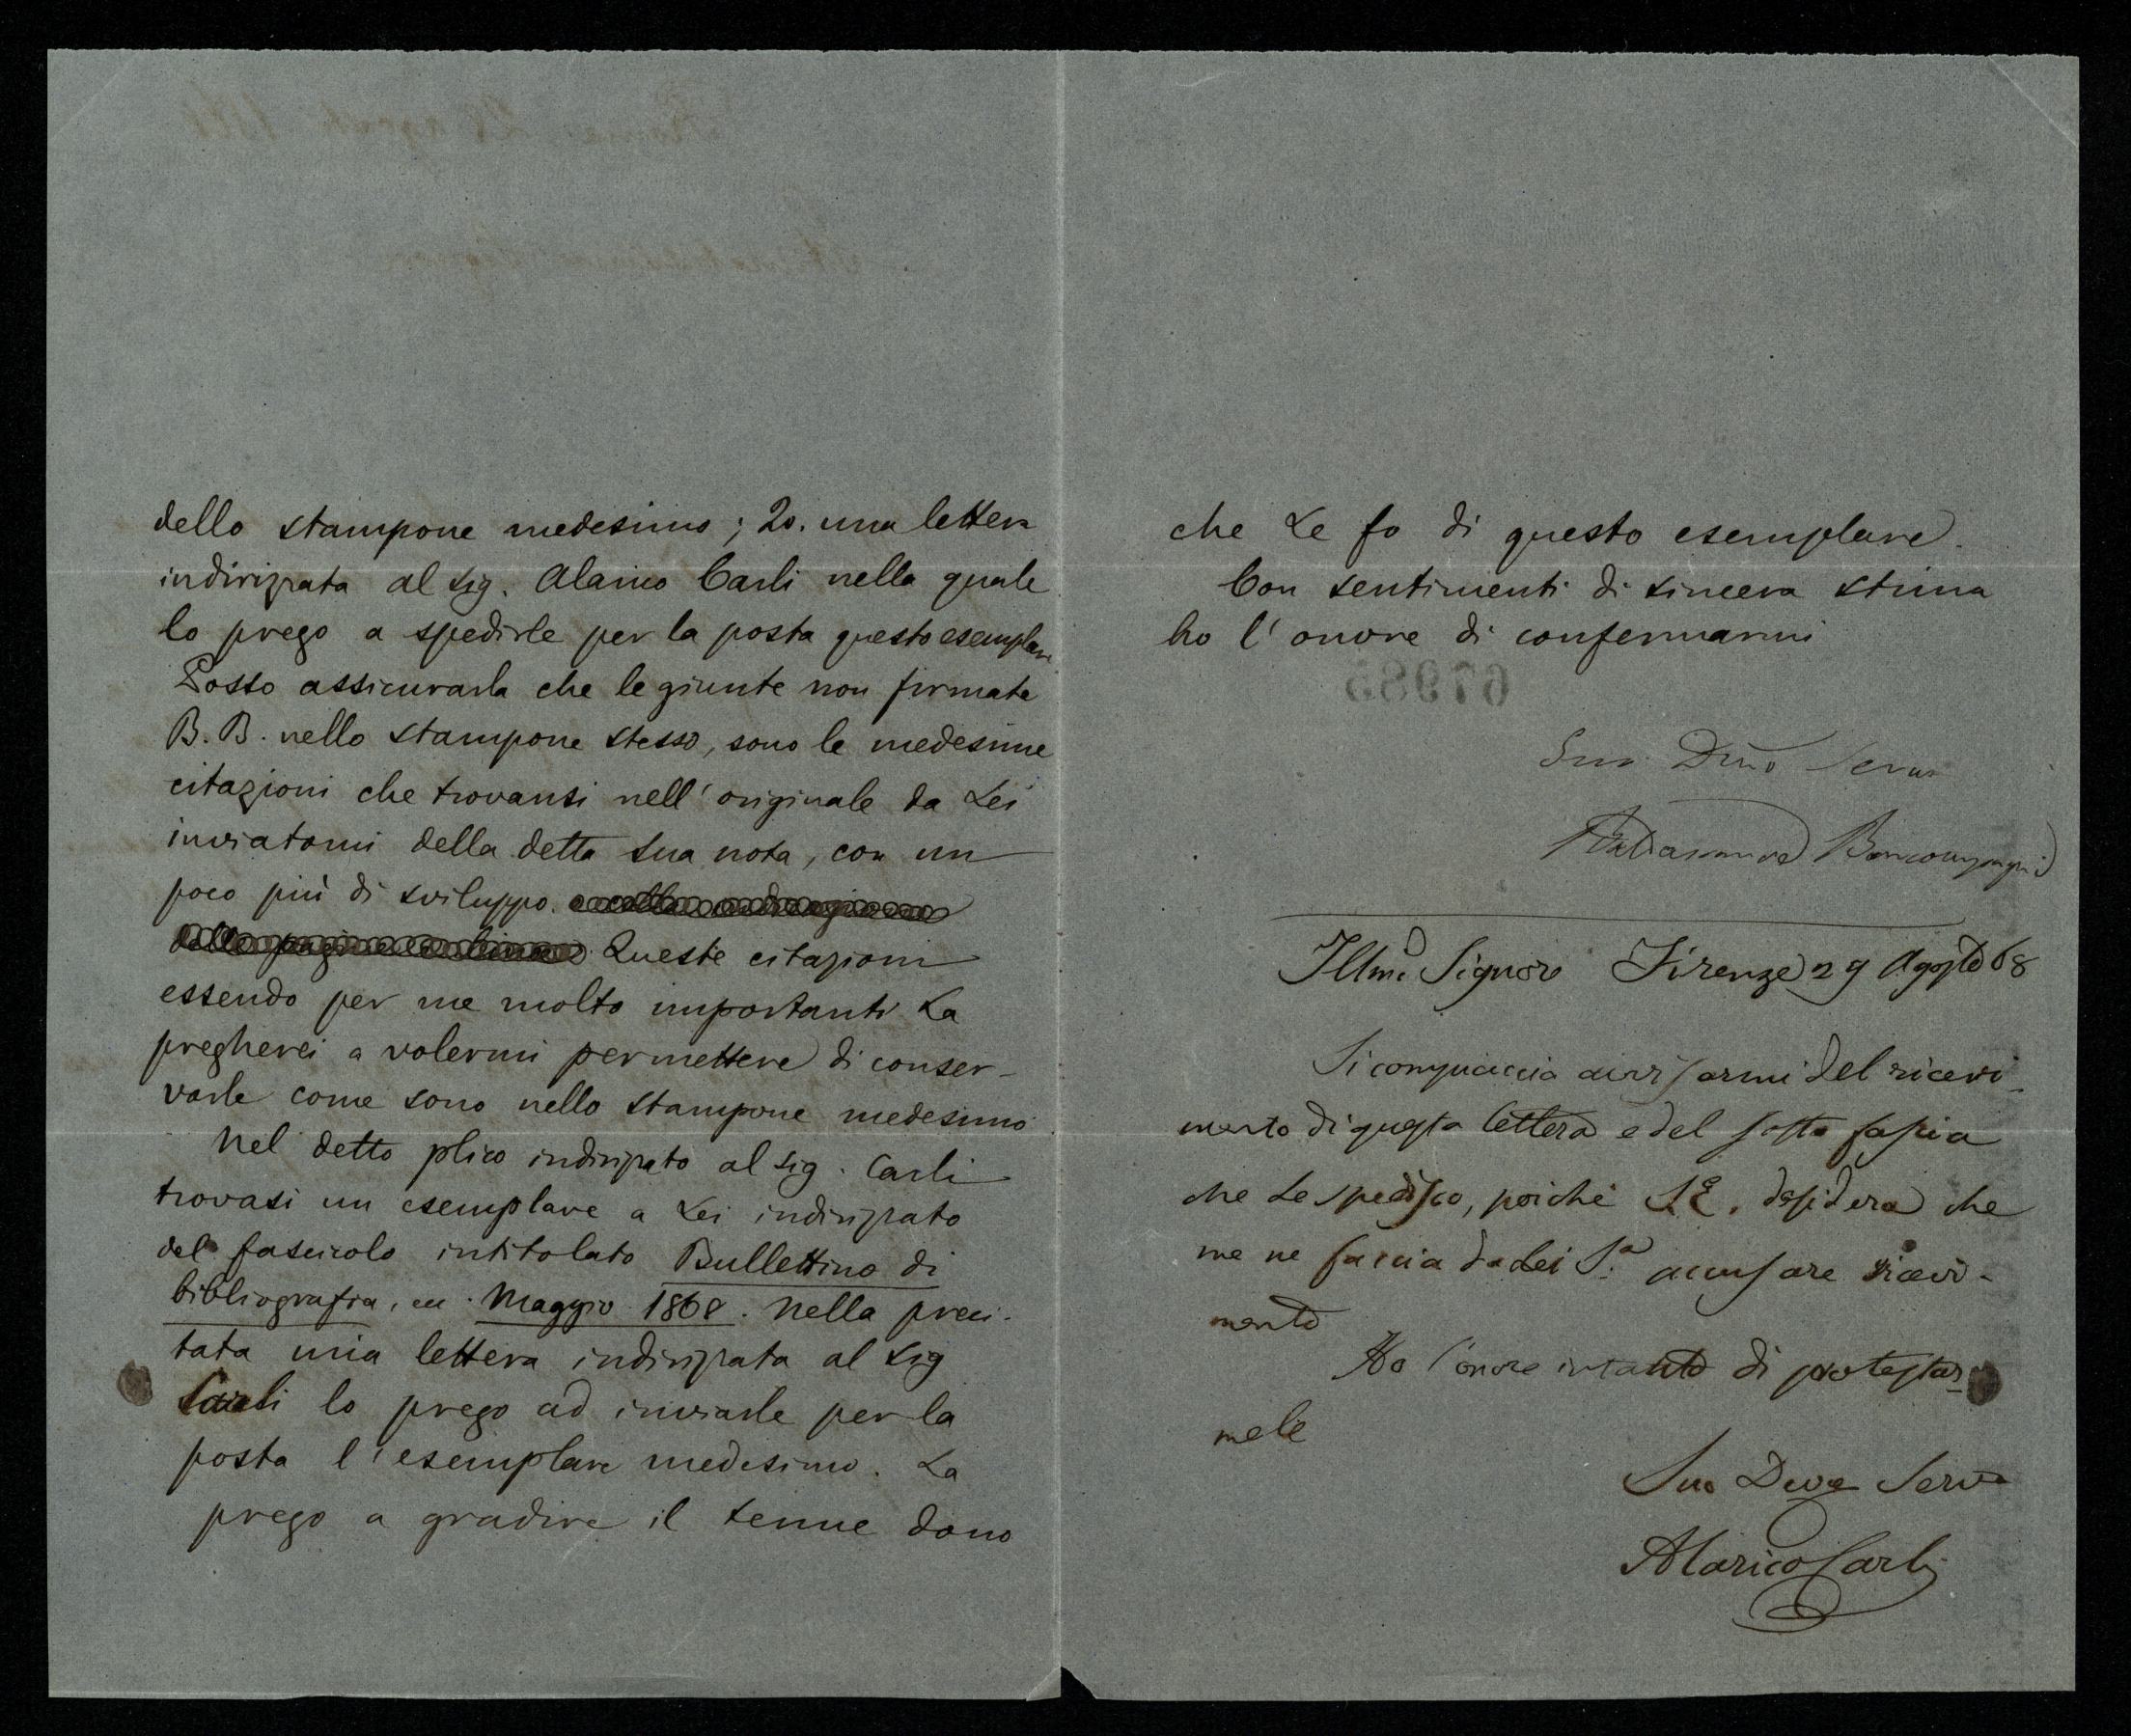 dello stampone medesimo; 2o. una lettera
indirizzata al Sig. Alarico Carli nella quale
lo prego a spedirle per la posta questo esemplare
Posso assicurarla che le giunte non firmate
B. B. nello stampone stesso, sono le medesime
citazioni che trovansi nell' originale da Lei
inviatomi della detta sua nota, con un
poco più di sviluppo.
Queste citazioni
essendo per me molto importanti La
pregherei a volermi permettere di conser-
varle come sono nello stampone medesimo
Nel detto plico indirizzato al Sig. Carli
trovasi un esemplare a Lei indirizzato
del fascicolo intitolato Bullettino di
bibliografia, ec. Maggio 1868. Nella preci-
tata mia lettera indirizzata al Sig
Carli lo prego ad inviarle per la
posta l'esemplare medesimo. La
prego a gradire il tenue dono
che Le fo di questo esemplare.
Con sentimenti di sincera stima
ho l'onore di confermarmi
67985
Suo Dmo Servo
Baldassarre Boncompagni
Illmo Signore Firenze 29 Agosto 68
Si compiaccia avvisarmi del ricevi-
mento di questa lettera e del sotto fascia
che Le spedisco, poichè S. E. desidera che
me ne faccia da Lei S.a accusare ricevi-
mento
Ho l'onore intanto di protestar-
mele
Suo Devo Servo
Alarico Carli